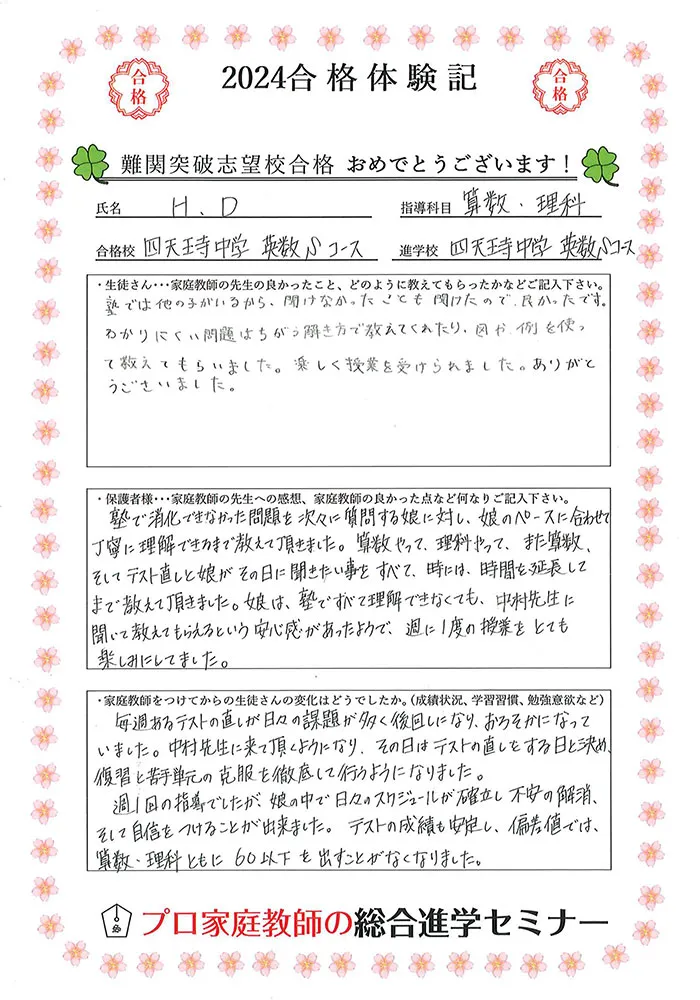 2024合格体験記
合格
合格
難関突破志望校合格 おめでとうございます！
氏名 H.D 指導科目 算数・理科
合格校 四天王寺中学 英数Sコース 進学校 四天王寺中学 英数Sコース
・生徒さん・・・家庭教師の先生の良かったこと、どのように教えてもらったかなどご記入下さい。
塾では他の子がいるから、聞けなかったことも聞けたので、良かったです。
わかりにくい問題はちがう解き方で教えてくれたり、図や、例を使っ
て教えてもらいました。楽しく授業を受けられました。ありがと
うございました。
・保護者様・・・家庭教師の先生への感想、家庭教師の良かった点など何なりご記入下さい。
塾で消化できなかった問題を次々に質問する娘に対し、娘のペースに合わせて
丁寧に理解できるまで教えて頂きました。算数やって、理科やって、また算数、
そしてテスト直しと娘がその日に聞きたい事をすべて、時には、時間を延長して
まで教えて頂きました。娘は、塾ですべて理解できなくても、中村先生に
聞いて教えてもらえるという安心感があったようで、週に1度の授業をとても
楽しみにしてました。
・家庭教師をつけてからの生徒さんの変化はどうでしたか。(成績状況、学習習慣、勉強意欲など)
毎週あるテストの直しが日々の課題が多く後回しになり、おろそかになって
いました。中村先生に来て頂くようになり、その日はテストの直しをする日と決め、
復習と苦手単元の克服を徹底して行うようになりました。
週1回の指導でしたが、娘の中で日々のスケジュールが確立し不安の解消、
そして自信をつけることが出来ました。テストの成績も安定し、偏差値では、
算数・理科ともに60以下を出すことがなくなりました。
プロ家庭教師の総合進学セミナー